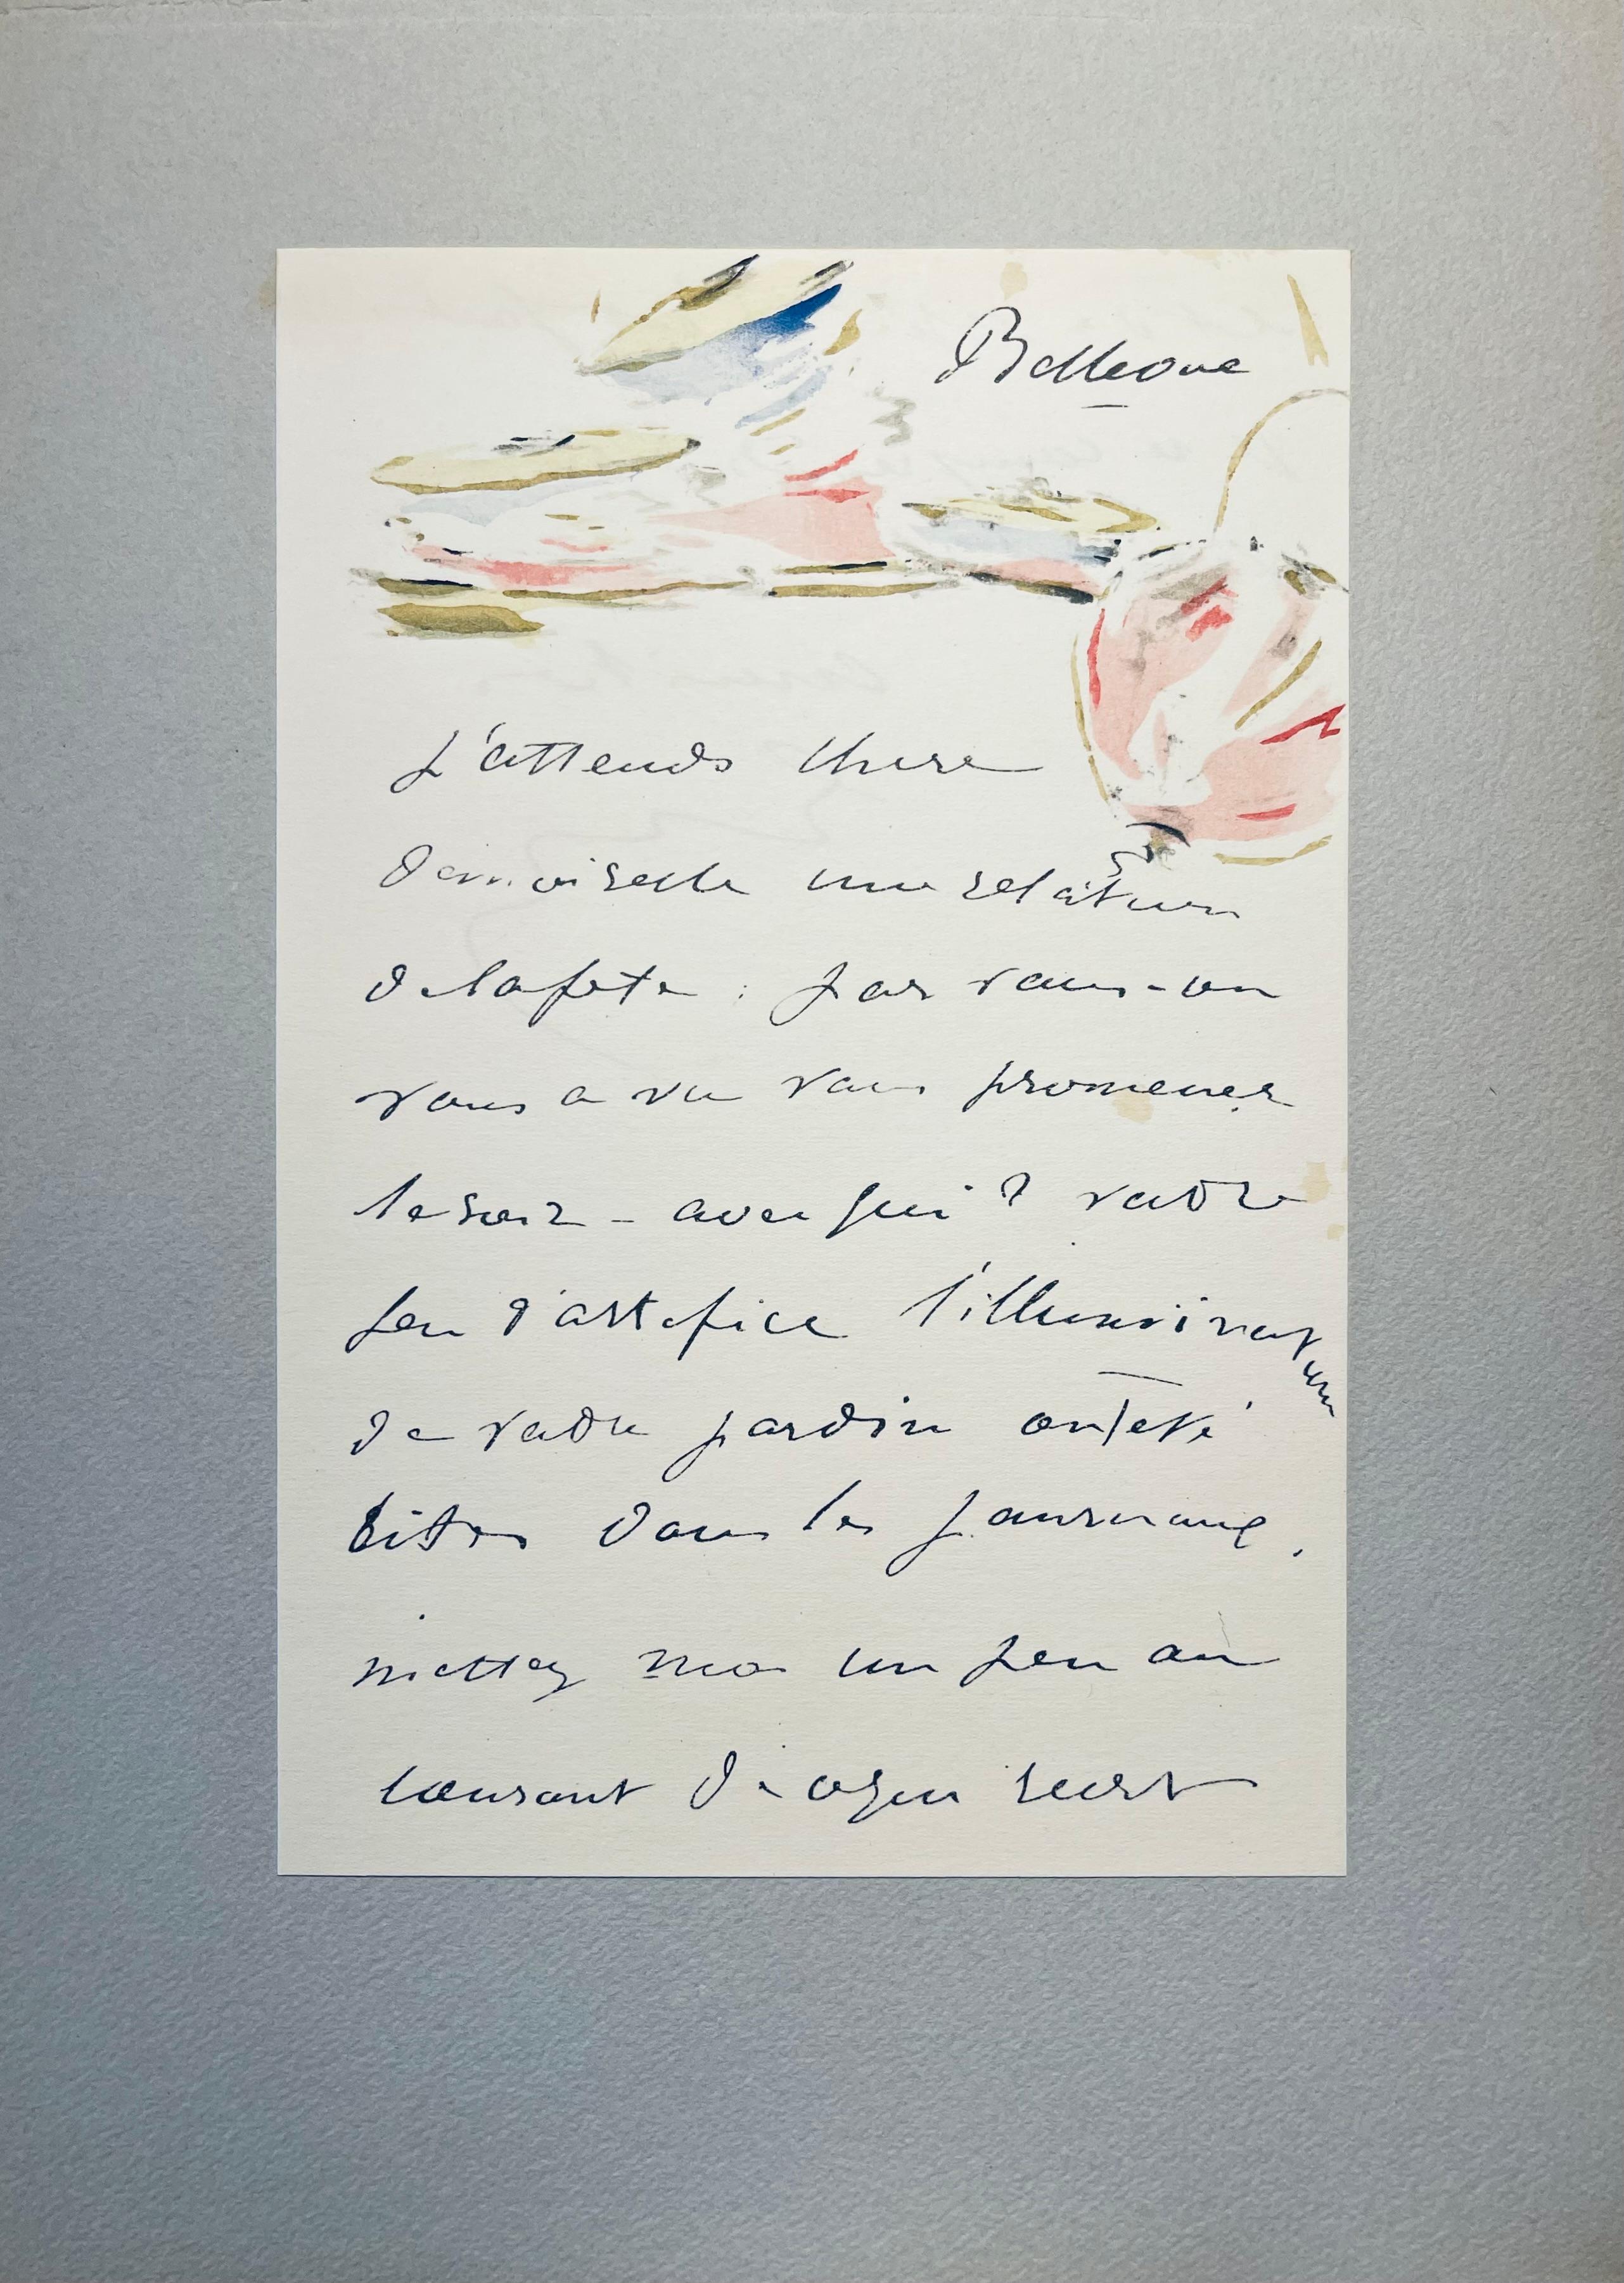 Bellevue
J'attends chère
demoiselle une relation
de la fete : par vous - on
vous a vu vous promener
le soir - avec qui ? votre
feu d'artifice l'illumination
de votre jardin ont été
cités dans les journaux.
mettez moi un peu au
courant de ce qui s'est